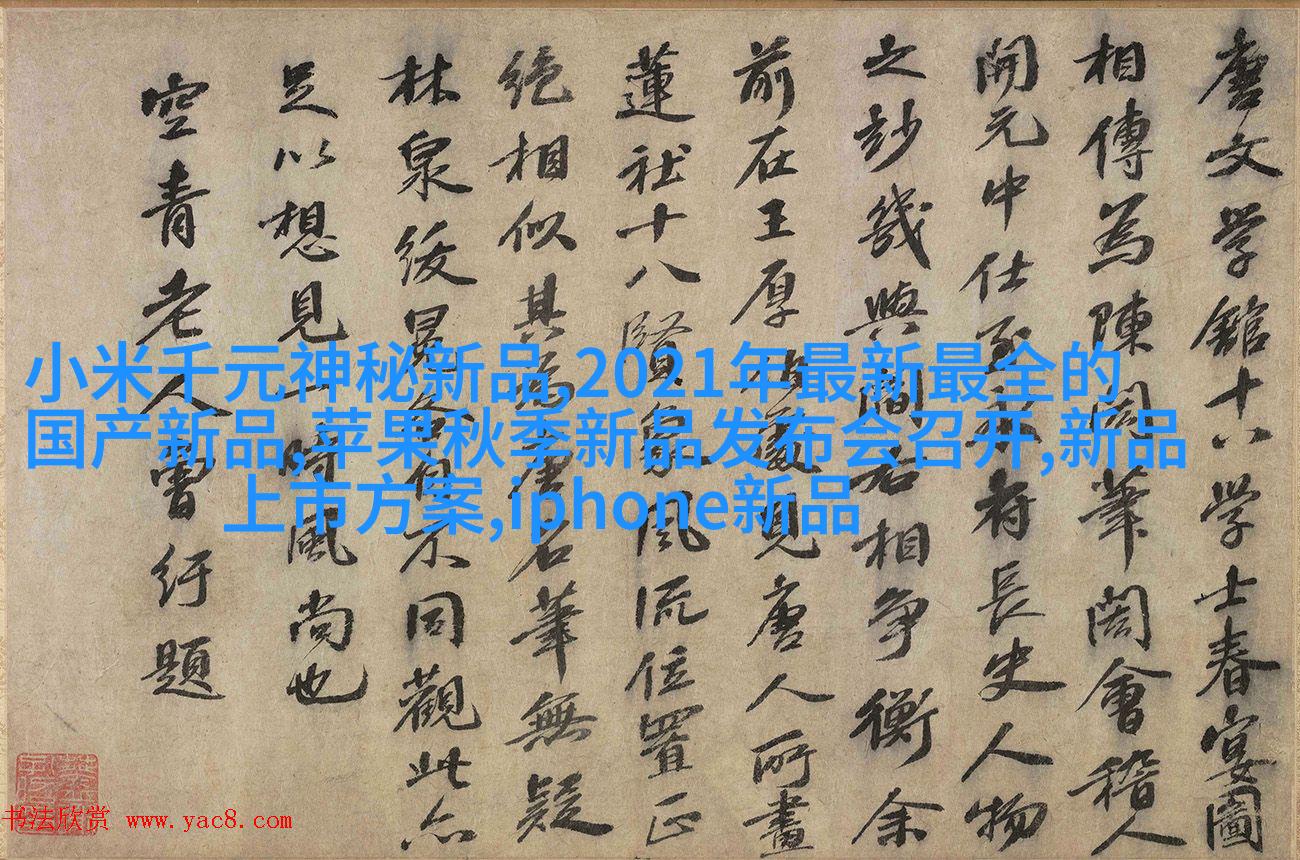 唐文学館十八学士春宴圖
相傳為陳閎筆閎會稽人
開元中仕至永府長史人物
之玅幾與閻右相争衡余
前在王厚見唐人所畫
蓮社十八賢象風流位置正
绝相似其為唐名筆無疑
林泉綬冕各不同觀此亦
足以想見一時風尚也
空青老人曾紆題
小米千元神秘新品,2021年最新最全的
国产新品,苹果秋季新品发布会召开,新品
上市方案,iphone新品
书法欣赏 www.yac8.com